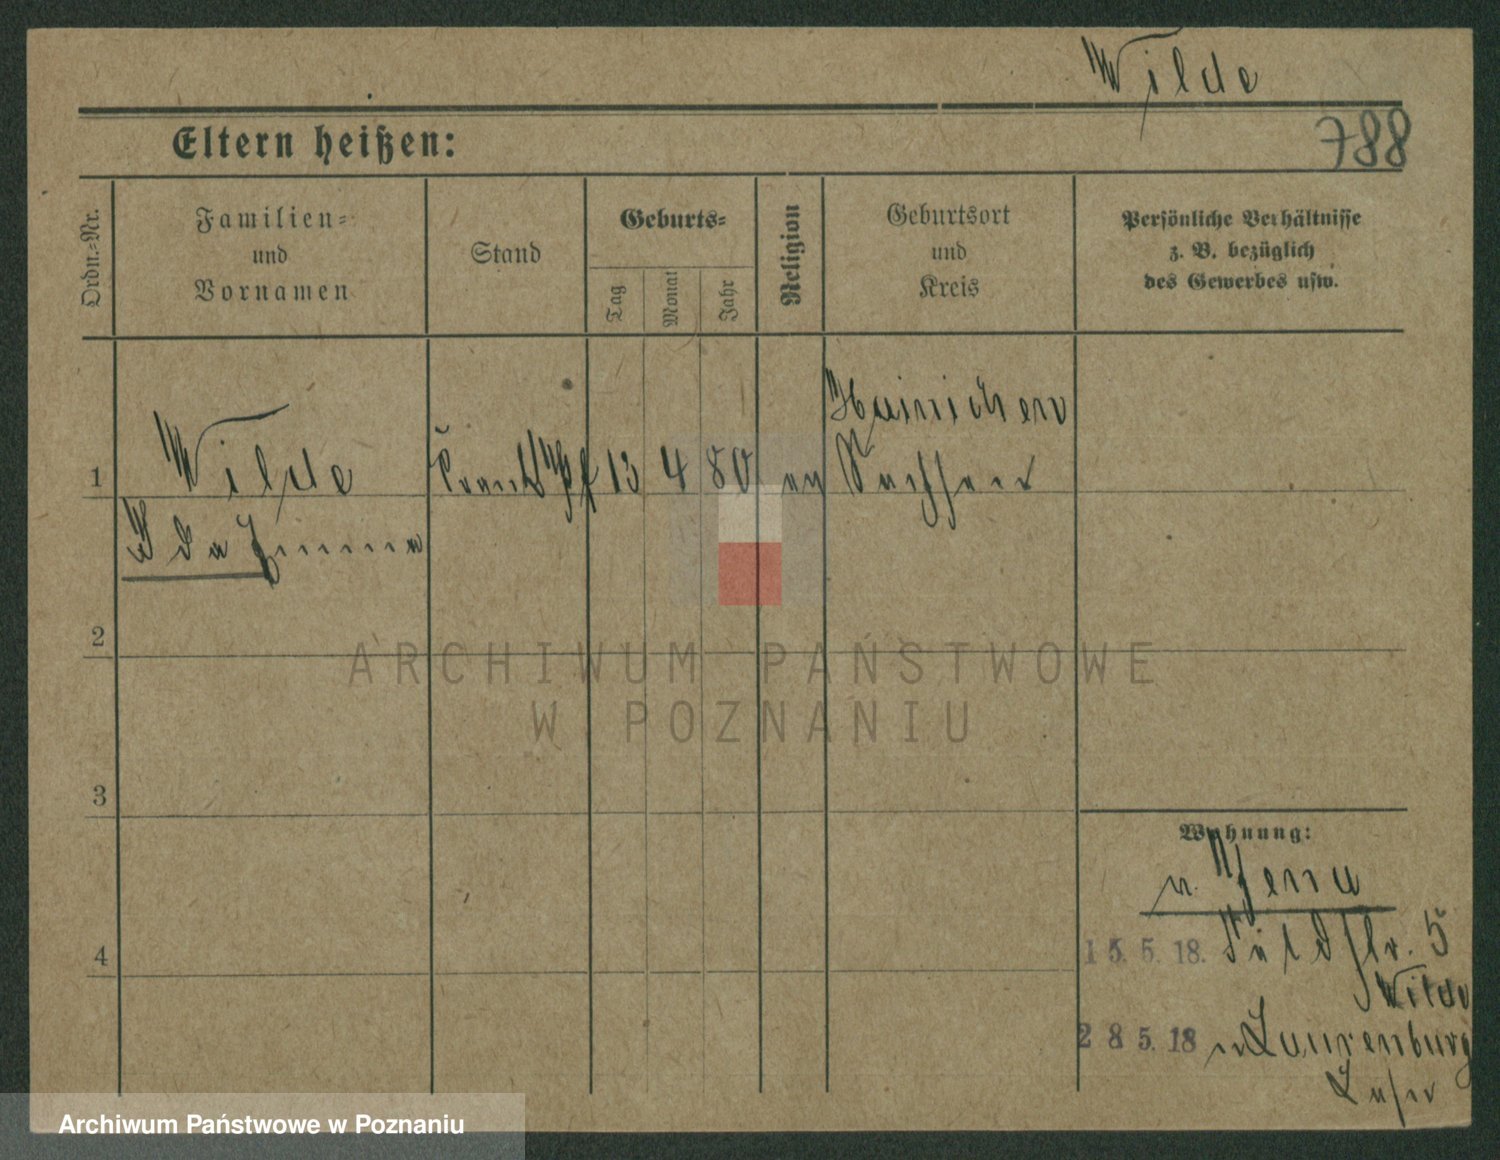 Wilde
Eltern heißen:
788
Ordn.-Nr.
Familien-
und
Vornamen
Stand
Geburts-
Tag
Monat
Jahr
Religion
Geburtsort
und
Kreis
Persönliche Verhältnisse
z. B. bezüglich
des Gewerbes usw.
1
Wilde
Ida Emma
13 4 80 ev
Hainichen
Sachsen
2
3
4
Wohnung:
v. Jena
15. 5. 18. Feldstr. 5
Wilde
28 5. 18 n Laurenburg
Lahn
ARCHIWUM PAŃSTWOWE
W POZNANIU
Archiwum Państwowe w Poznaniu